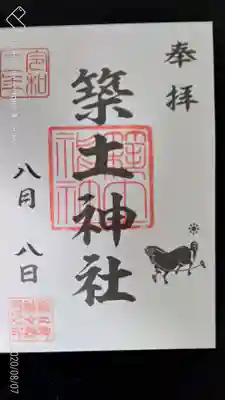 奉拝
築土神社
令和
二年
八月 八日
2020/08/07